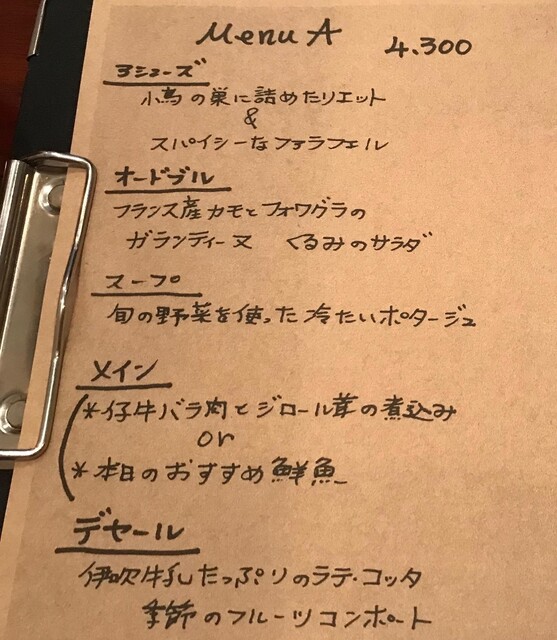 Menu A 4.300
アミューズ
小鳥の巣に詰めたリエット
&
スパイシーなファラフェル
オードブル
フランス産カモとフォワグラの
ガランティーヌ くるみのサラダ
スープ
旬の野菜を使った冷たいポタージュ
メイン
*仔牛バラ肉とジロール茸の煮込み
or
*本日のおすすめ鮮魚
デセール
伊吹牛乳たっぷりのラテ・コッタ
季節のフルーツコンポート